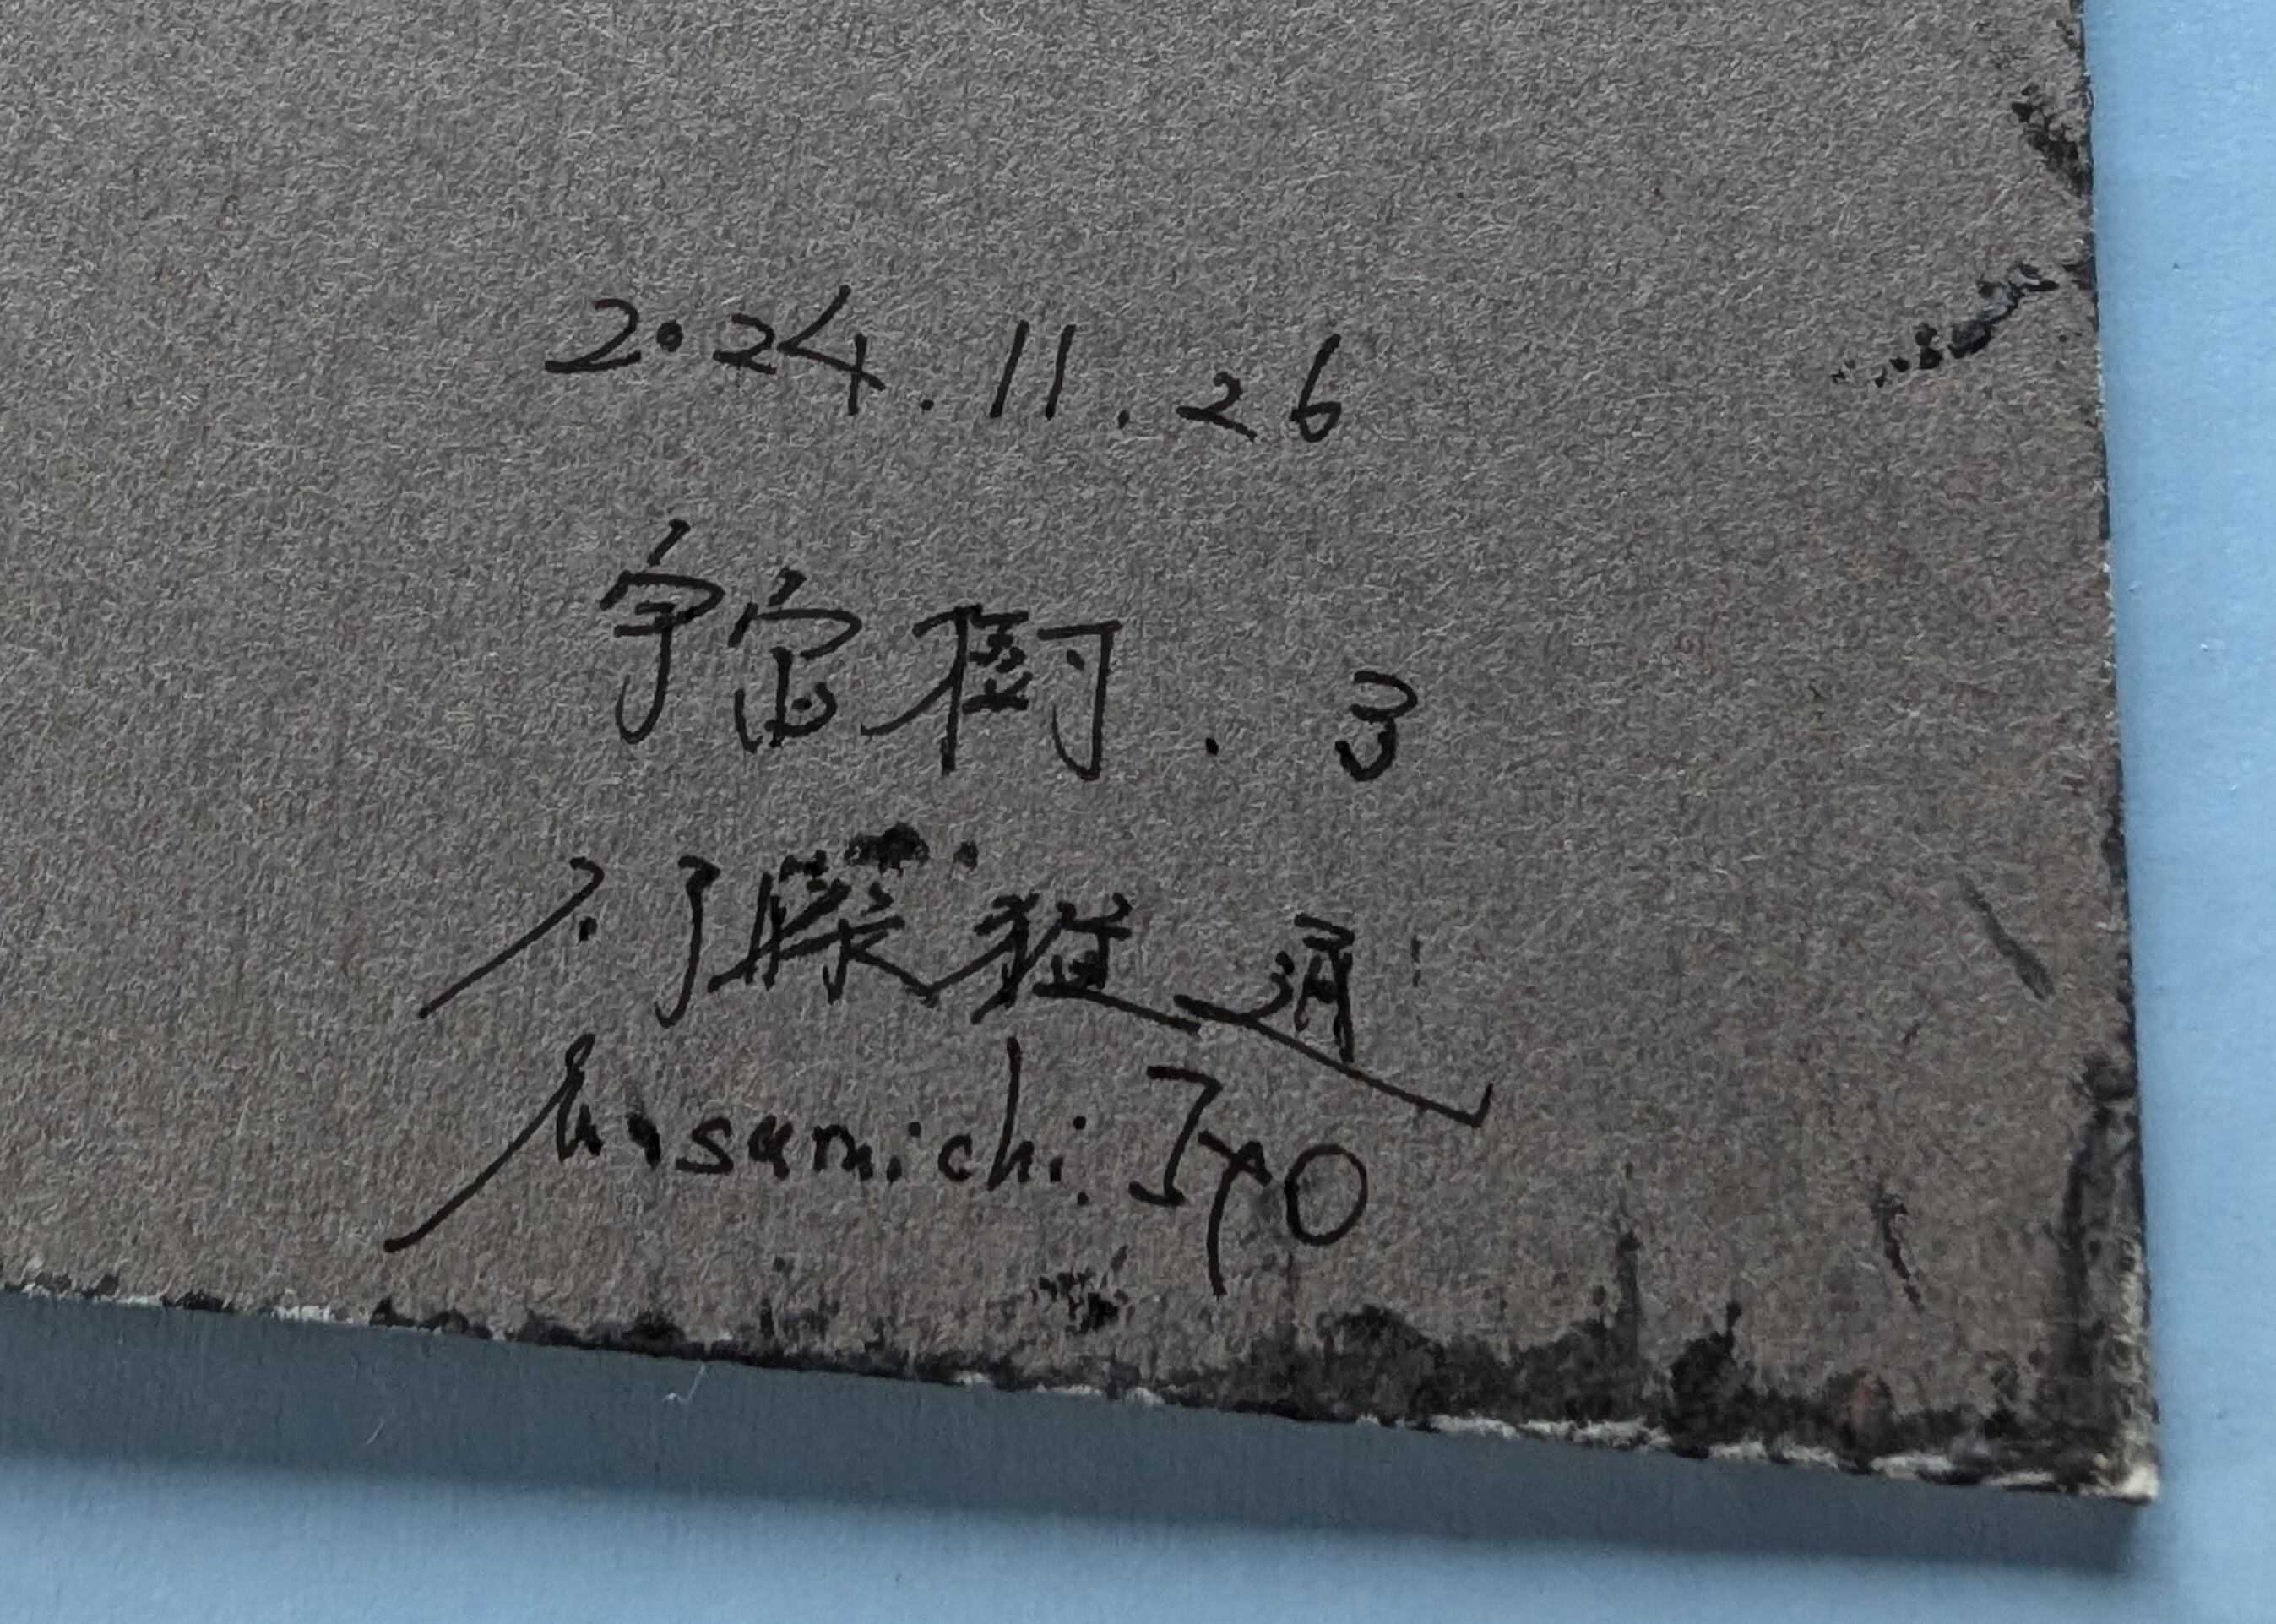 2024.11.26
宇宙樹.3
藤雅通
Masamichi